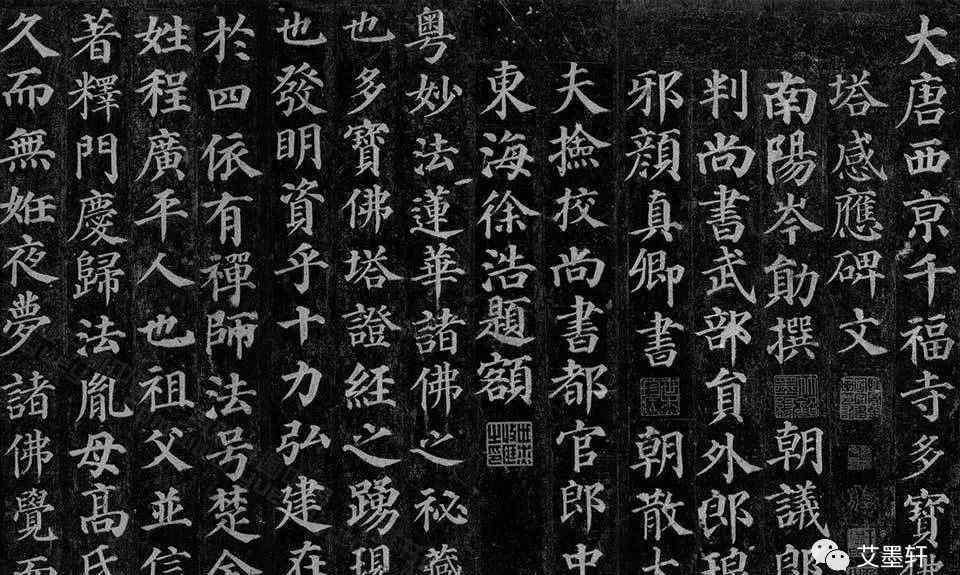 大唐西亰千福寺多寳佛
塔感應碑文
南陽岑勛撰朝議郎
判尚書武部貟外郎琅
邪顔真卿書朝散大
夫撿挍尚書都官郎中
東海徐浩題額
粵妙法蓮華諸佛之祕藏
也多寳佛塔證經之踴現
也發明資乎十力弘建在
於四依有禪師法号楚金
姓程廣平人也祖父並信
著釋門慶歸法胤母髙氏
久而無姙夜夢諸佛覺而
艾墨轩